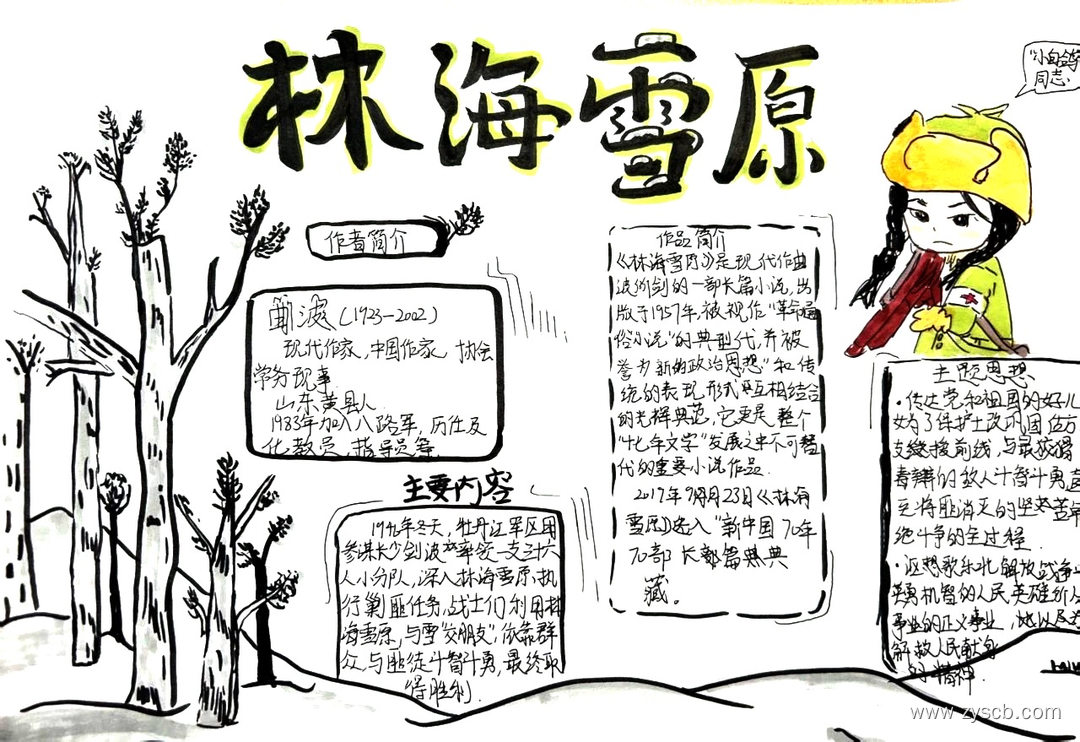 林海雪原
"小白鸽
同志.
作者简介
曲波(1923-2002)
现代作家,中国作家 协会
常务理事.
山东黄县人
1933年加入八路军,历任及
化教员,指导员等.
主要内容
1946年冬天,牡丹江军区团
参谋长少剑波率领一支三十六
人小分队,深入林海雪原,执
行剿匪任务,战士们利用林
海雪原,与雪"交朋友",依靠群
众,与匪徒斗智斗勇,最终取
得胜利.
作品简介
《林海雪原》是现代作曲
波创的一部长篇小说,出
版于1957年,被视作"革命通
俗小说"的典型代,并被
誉为"新的政治思想"和传
统的表现形式互相结合
的光辉典范,它更是整个
"十七年文学"发展之中不可替
代的重要小说作品.
2019年9月23日《林海
雪原》入"新中国70年
70部长篇 典
藏。
主题思想
·传达党和祖国的好儿
女为了保护土改巩固后方
支继援前线,与最狡猾
毒辣的敌人斗智斗勇直
至将匪消灭的坚苦卓
绝斗争的全过程.
·还想歌东北解放战争
勇机智的人民英雄
事业的正义事业,
解救人民献身
的精神.
www.zyscb.com